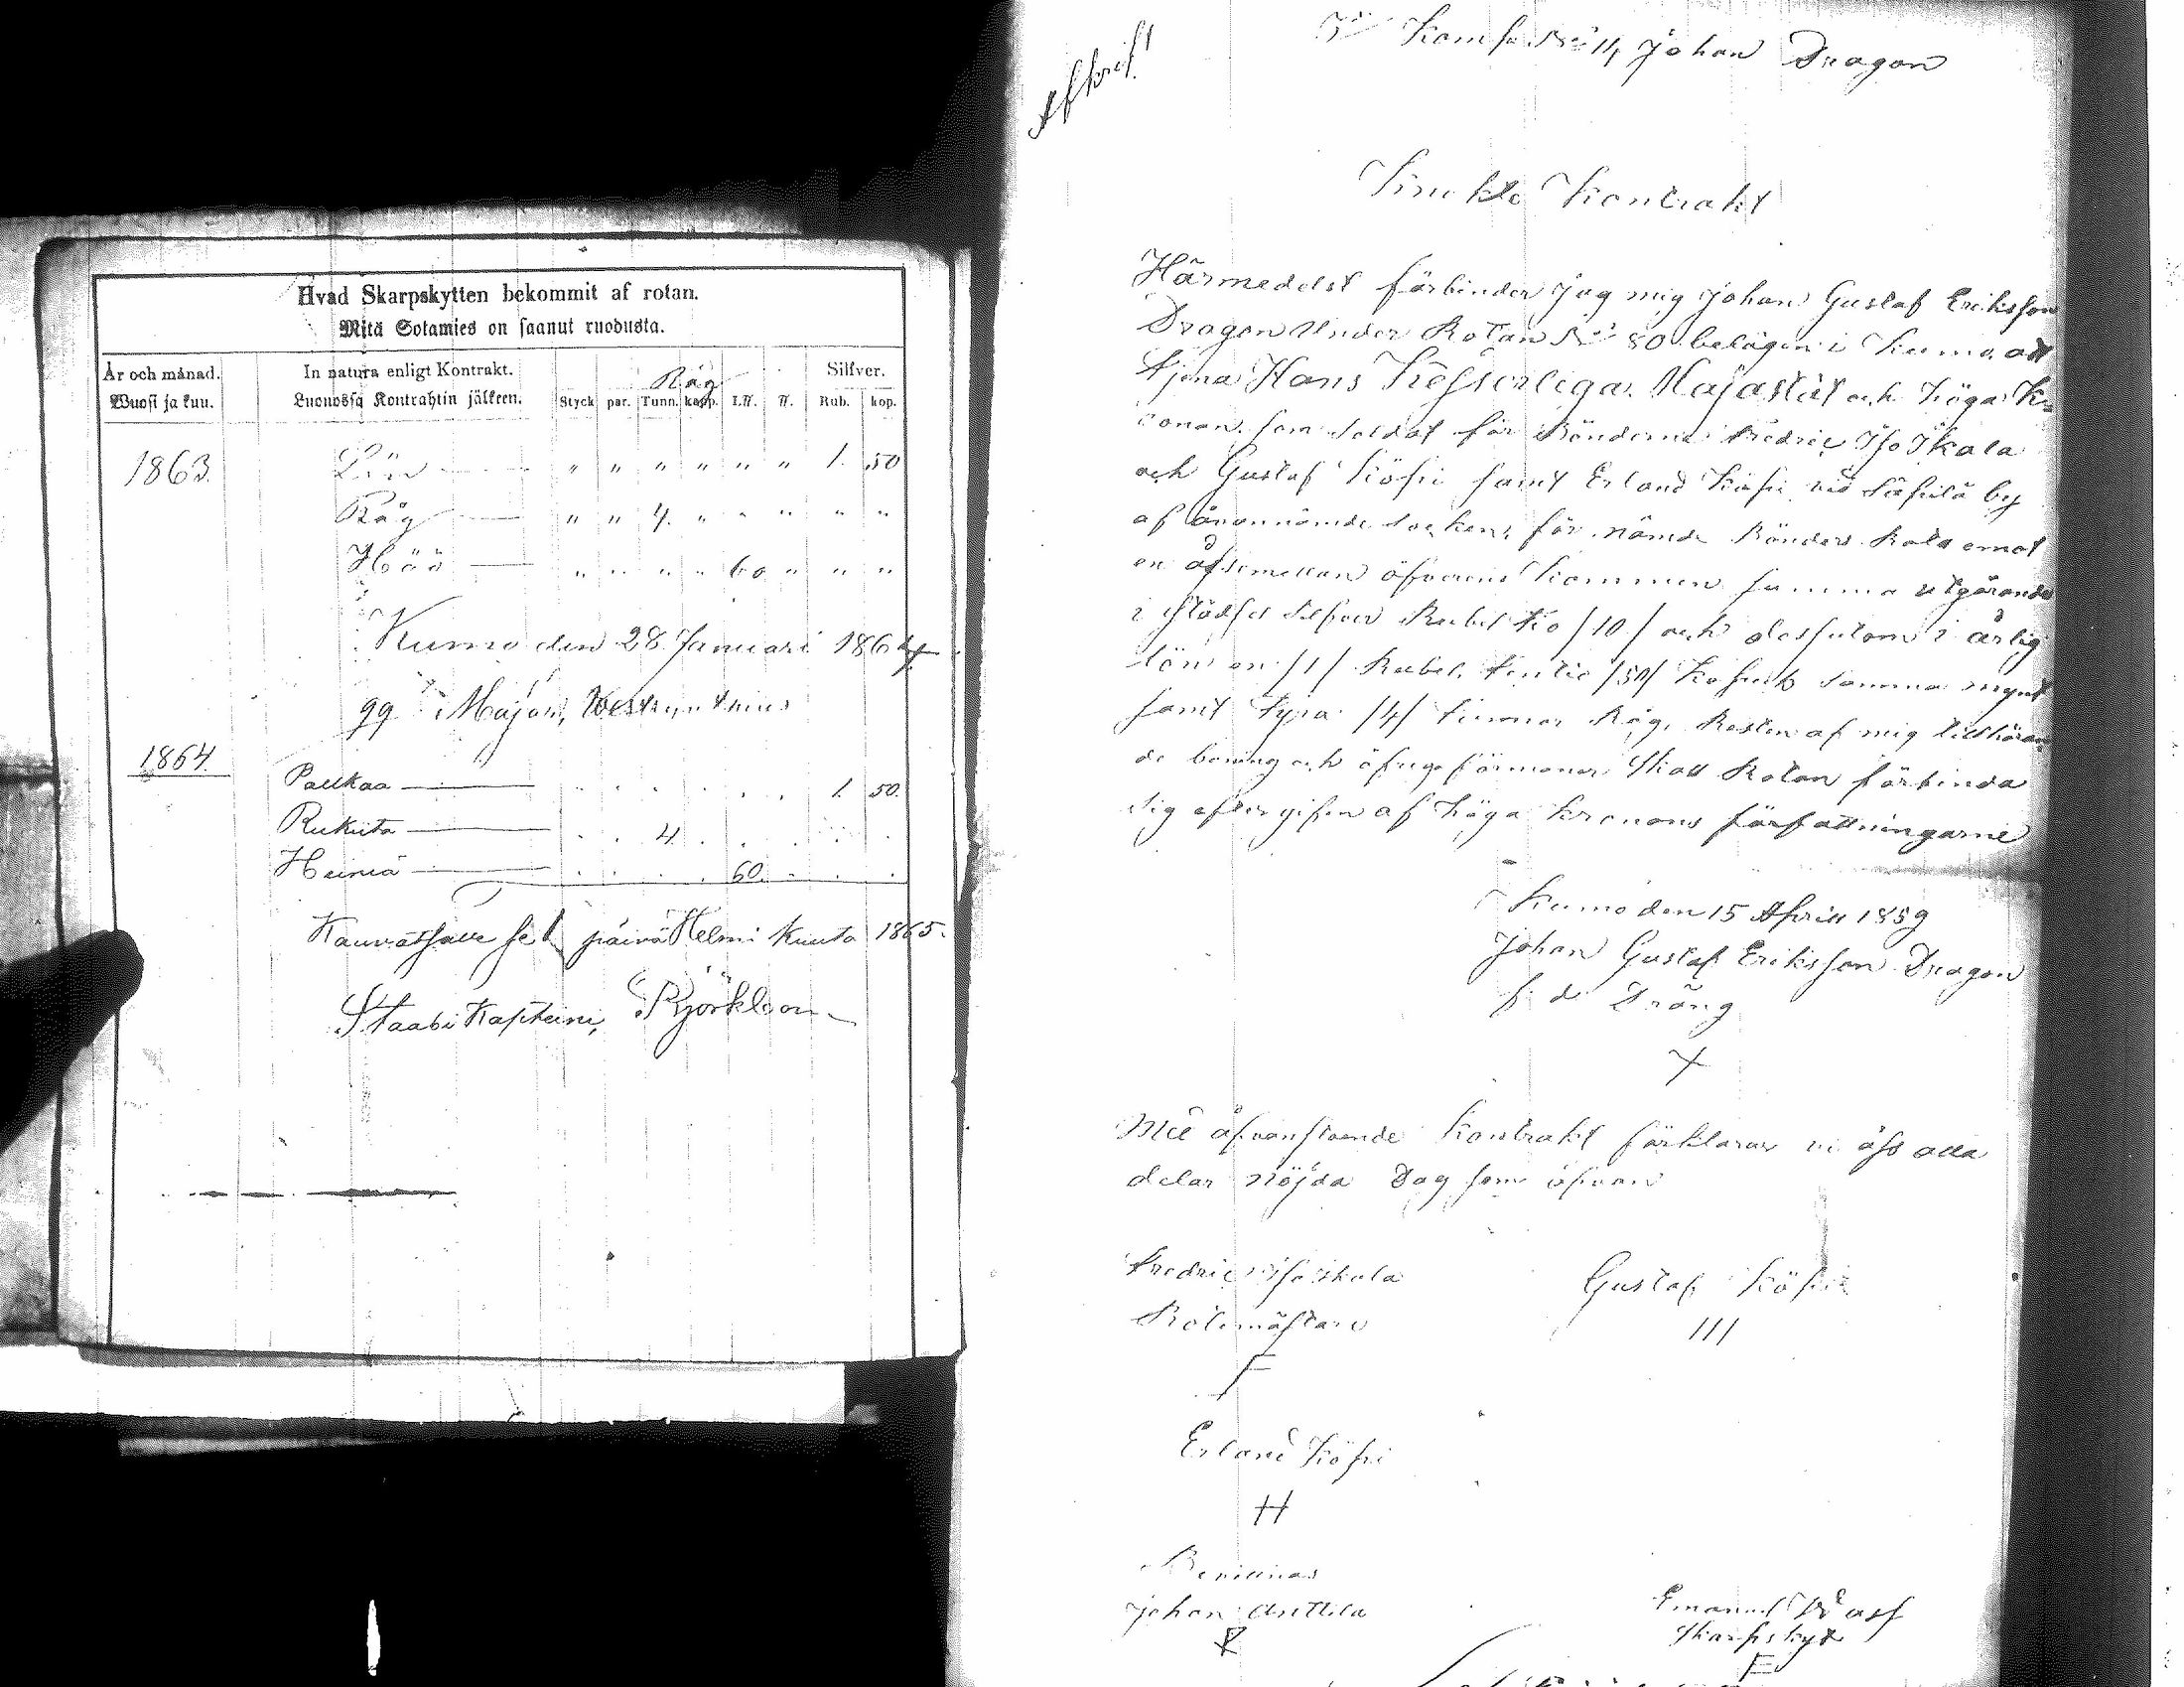 Hvad Skarpskytten bekommit af rotan.
Mitä Sotamies on saanut ruodusta.
År och månad. In natura enligt Kontrakt. Råg Silfver.
Wuosi ja kuu. Luonossa Kontrahtin jälkeen. Styck par. Tunn. kapp. L℔. ℔. Rub. kop.
1863. Lön — " " " " " " 1. 50
Råg — " " 4. " " " " "
Höö — " " " " 60 " " "
Kumo den 28 Januari 1864
Major,
1864.
Palkaa — 1. 50.
Rukiita — 4.
Heiniä — 60.
päivä Helmi Kuuta 1865.
Staabi Kapteini, Björkbom
Afskrif
Komp. No 11, Johan Dragon
Knekte Kontrakt
Härmedelst förbinder jag mig Johan Gustaf Eriksson
Dragon under Rotan No 80 belägen i Kumo att
tjena Hans Kejserliga Majestät och höga Kr
onan som soldat för Bönderne Fredric Iso Ikala
och Gustaf Köpi samt Erland Köpi vid Säpilä by
af ånannämde Socken, för nämde Bönders Rota emot
en åfsimellan öfverens kommen summa utgörande
i Städsel Silfver Rubel tio /10/ och dessutom i årlig
lön en /1/ Rubel, femtio /50/ Kopek samma mynt
samt fyra /4/ tunnor Råg, Resten af mig tillhöran
de boning och öfriga förmoner Skall Rotan förbinda
sig eftergifva af höga Kronans författningarne
Kumo den 15 April 1859
Johan Gustaf Eriksson Dragon
f. d. Dräng
X
Med åfvanstående Kontrakt förklarar vi åss alla
delar nöjda Dag som ofvan
Fredric Iso Ikala Gustaf Köpi
Rotemästare III
F
Erland Köpi
H
Bevittnas
Johan Anttila Emanuel Rask
Skarpskyt